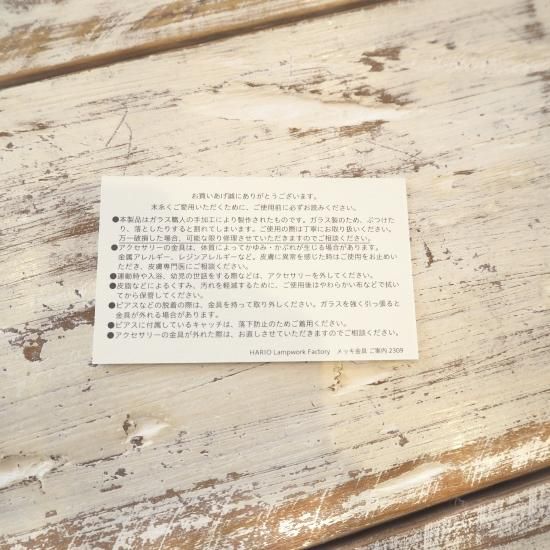 お買いあげ誠にありがとうございます。
末永くご愛用いただくために、ご使用前に必ずお読みください。
●本製品はガラス職人の手加工により製作されたものです。ガラス製のため、ぶつけた
り、落としたりすると割れてしまいます。ご使用の際は丁寧にお取り扱いください。
万一破損した場合、可能な限り修理させていただきますのでご相談ください。
●アクセサリーの金具は、体質によってかゆみ・かぶれが生じる場合があります。
金属アレルギー、レジンアレルギーなど。皮膚に異常を感じた時はご使用をお止めい
ただき、皮膚専門医にご相談ください。
●運動時や入浴、幼児の世話をする際などは、アクセサリーを外してください。
●皮脂などによるくすみ、汚れを軽減するために、ご使用後はやわらかい布などで拭い
てから保管してください。
●ピアスなどの脱着の際は、金具を持って取り外しください。ガラスを強く引っ張ると
金具が外れる場合があります。
●ピアスに付属しているキャッチは、落下防止のためご着用ください。
●アクセサリーの金具が外れた際は、お直しさせていただきますのでご相談ください。
HARIO Lampwork Factory メッキ金具 ご案内 2309